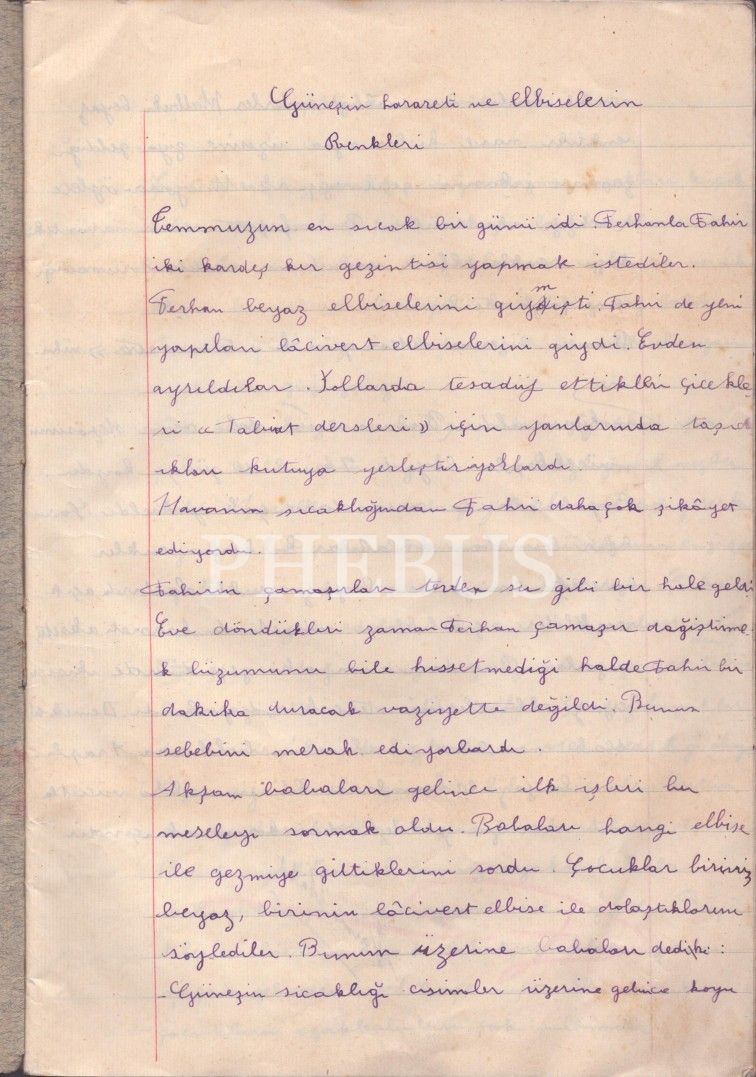 Güneşin harareti ve Elbiselerin
Renkleri
Temmuzun en sıcak bir günü idi. Ferhanla Fahir
iki kardeş kır gezintisi yapmak istediler.
Ferhan beyaz elbiselerini giymişti. Fahir de yeni
yapılan lâcivert elbiselerini giydi. Evden
ayrıldılar. Yollarda tesadüf ettikleri çiçekle
ri «Tabiat dersleri» için yanlarında taşıd
ıkları kutuya yerleştiriyorlardı.
Havanın sıcaklığından Fahir daha çok şikâyet
ediyordu.
PHEBUS
Fahirin çamaşırları terden su gibi bir hale geldi
Eve döndükleri zaman Ferhan çamaşır değiştirme
k lüzumunu bile hissetmediği halde Fahir bir
dakika duracak vaziyette değildi. Bunun
sebebini merak ediyorlardı.
Akşam babaları gelince ilk işleri bu
meseleyi sormak oldu. Babaları hangi elbise
ile gezmiye gittiklerini sordu. Çocuklar birinin
beyaz, birinin lâcivert elbise ile dolaştıklarını
söylediler. Bunun üzerine babaları dedi ki:
-Güneşin sıcaklığı cisimler üzerine gelince koyu